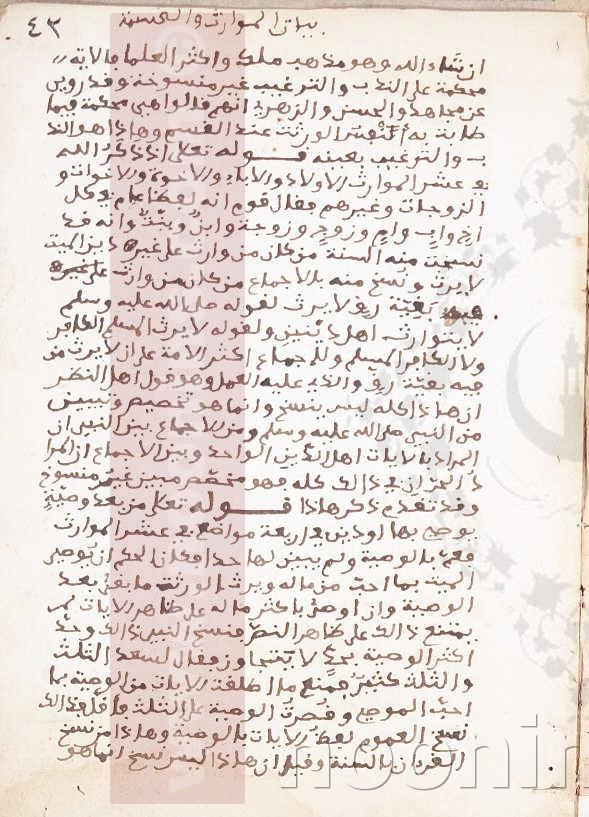 ٤٣
بيان الموارث والحسبة
ان شاء الله وهو مذهب ملك واكثر العلما فالاية
محكمة على الندب والترغيب غير منسوخة وقد روي
عن مجاهد والحسن والزهري انهم قالوا هي محكمة فيما
طابت به انفس الورثة عند القسم وهاذا هو الند
ب والترغيب بعينه قوله تعلى اذ ذكر الله
في عشر الموارث الاولاد والاباء والاخوة والاخوات و
الزوجات وغيرهم فقال قوم انه لفظ عام في كل
اخ واب وام وزوج وزوجة وابن وبنت وانه قد
نسخت منه السنة من كان من وارث على غير دين الميت
لا يرث ونسخ منه بالاجماع من كان من وارث على غيره
فيه بقية رق لا يرث لقوله صلى الله عليه وسلم
لا يتوارث اهل دينين ولقوله لا يرث المسلم الكافر
ولا الكافر المسلم وللاجماع اكثر الامة على ان لا يرث من
فيه بقية رق والذي عليه العمل وهو قول اهل النظر
ان هاذا كله ليس بنسخ وانما هو تخصيص وتبيين
من النبي صلى الله عليه وسلم ومن الاجماع بين النبي ان
المراد بالايات اهل الدين الواحد وبين الاجماع ان المرا
د الحران في ذالك كله فهو مخصص مبين غير منسوخ
وقد تقدم ذكر هاذا قوله تعلى من بعد وصية
يوصي بها او دين في اربعة مواضع في عشر الموارث
فعم بالوصية ولم يبين لها حدا فكان الحكم ان يوصي
الميت بما احب من ماله ويرث الورثة ما بقي بعد
الوصية وان اوصى باكثر ماله على ظاهر الايات لم
يمتنع ذالك على ظاهر النص فنسخ النبي ذالك وحد
اكثر الوصية بحد لا يتجاوز فقال لسعد الثلث
والثلث كثير فمنع ما اطلقته الايات من الوصية بما
احب الموصي وقصرت الوصية على الثلث فاقل فذالك
نسخ العموم لفظ الايات بالوصية وهاذا من نسخ
القرءان بالسنة وقيل ان هاذا ليس نسخ انما هو
noonin